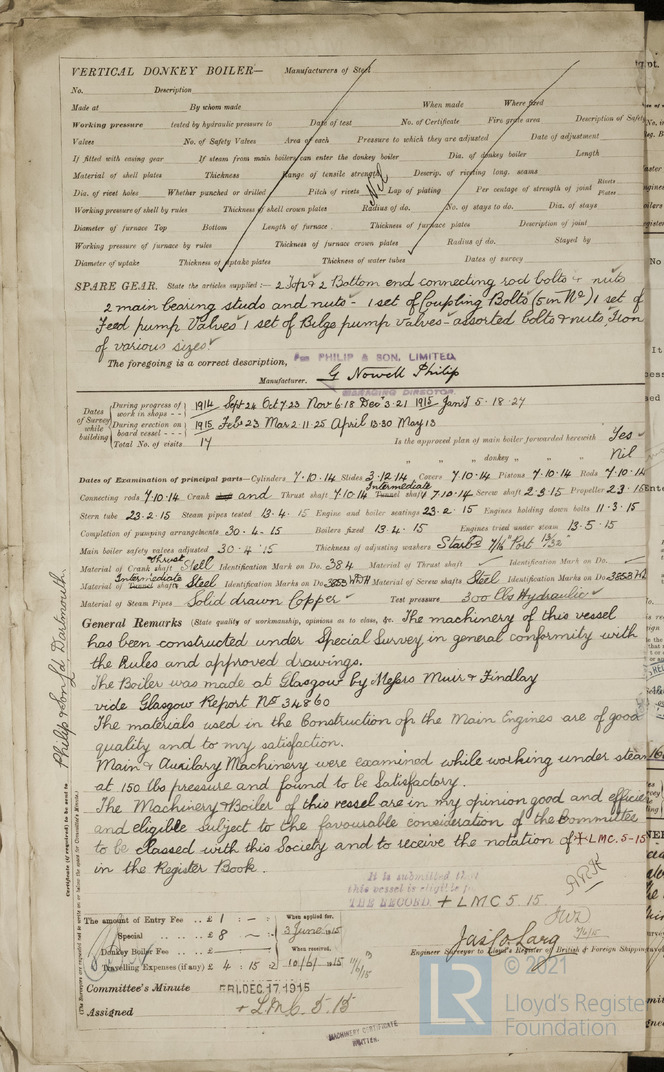 VERTICAL DONKEY BOILER— Manufacturers of Steel
No. Description
Made at By whom made When made Where fixed
Working pressure tested by hydraulic pressure to Date of test No. of Certificate Fire grate area Description of Safety
Valves No. of Safety Valves Area of each Pressure to which they are adjusted Date of adjustment
If fitted with easing gear If steam from main boilers can enter the donkey boiler Dia. of donkey boiler Length
Material of shell plates Thickness Range of tensile strength Descrip. of riveting long. seams
Nil
Dia. of rivet holes Whether punched or drilled Pitch of rivets Lap of plating Per centage of strength of joint Rivets Plates
Working pressure of shell by rules Thickness of shell crown plates Radius of do. No. of stays to do. Dia. of stays
Diameter of furnace Top Bottom Length of furnace Thickness of furnace plates Description of joint
Working pressure of furnace by rules Thickness of furnace crown plates Radius of do. Stayed by
Diameter of uptake Thickness of uptake plates Thickness of water tubes Dates of survey
SPARE GEAR. State the articles supplied:— 2 Top & 2 Bottom end connecting rod bolts & nuts
2 main bearing studs and nuts - 1 set of Coupling Bolts (5 in No) 1 set of
Feed pump Valves 1 set of Bilge pump valves - assorted bolts & nuts, Iron
of various sizes.
The foregoing is a correct description,
FOR PHILIP & SON, LIMITED,
Manufacturer. G Nowell Philip
MANAGING DIRECTOR.
Dates of Survey while building
During progress of work in shops - - 1914 Sept 24 Oct 7.23 Nov 6.18 Dec 3.21 1915 Jan 1. 5. 18. 27
During erection on board vessel - - 1915 Feb 23 Mar 2.11.25 April 13.30 May 13
Total No. of visits 17 Is the approved plan of main boiler forwarded herewith Yes
" " " donkey " " " Nil
Dates of Examination of principal parts—Cylinders 7.10.14 Slides 3.12.14 Covers 7.10.14 Pistons 7.10.14 Rods 7.10.14
Connecting rods 7.10.14 Crank and Thrust shaft 7.10.14 Intermediate Tunnel shaft 7.10.14 Screw shaft 2.3.15 Propeller 2.3.15
Stern tube 23.2.15 Steam pipes tested 13.4.15 Engine and boiler seatings 23.2.15 Engines holding down bolts 11.3.15
Completion of pumping arrangements 30.4.15 Boilers fixed 13.4.15 Engines tried under steam 13.5.15
Main boiler safety valves adjusted 30.4.15 Thickness of adjusting washers Starbd 7/16" Port 13/32"
Material of Crank Thrust shaft Steel Identification Mark on Do. 384 Material of Thrust shaft Identification Mark on Do.
Material of Intermediate Tunnel shafts Steel Identification Marks on Do. 3853 Material of Screw shafts Steel Identification Marks on Do. 3853
Material of Steam Pipes Solid drawn Copper Test pressure 300 lbs Hydraulic
General Remarks (State quality of workmanship, opinions as to class, &c. The machinery of this vessel
has been constructed under Special Survey in general conformity with
the Rules and approved drawings.
The Boiler was made at Glasgow by Messrs Muir & Findlay
vide Glasgow Report No 34860
The materials used in the Construction of the Main Engines are of good
quality and to my satisfaction.
Main & Auxilary Machinery were examined while working under steam
at 150 lbs pressure and found to be Satisfactory.
The Machinery & Boiler of this vessel are in my opinion good and efficien
and eligible subject to the favourable consideration of the Committee
to be classed with this Society and to receive the notation of + LMC. 5-15
in the Register Book.
It is submitted that
this vessel is eligible for
THE RECORD. + LMC 5. 15
The amount of Entry Fee .. £ 1 : - :
Special .. £ 8 -
Donkey Boiler Fee .. £
Travelling Expenses (if any) £ 4 : 15 : 2
When applied for,
3 June 1915
When received,
10/6/1915
Jas. Co. Larg
Engineer Surveyor to Lloyd's Register of British & Foreign Shipping
Committee's Minute FRI. DEC. 17. 1915
Assigned + LMC. 5. 15
MACHINERY CERTIFICATE
WRITTEN.
Certificate (if required) to be sent to Philip & Son Ld Dartmouth
(The Surveyors are requested not to write on or below the space for Committee's Minute.)
LR
© 2021
Lloyd's Register
Foundation